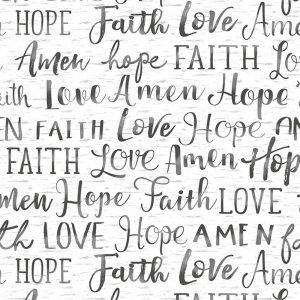 HOPE Faith Love Amen
Amen hope FAITH Lo
ith Love Amen Hope
EN FAITH Love HOPE AM
FAITH Love Amen Hop
men Hope Faith LOVE
th LOVE Hope AMEN fa
HOPE Faith Love Ame